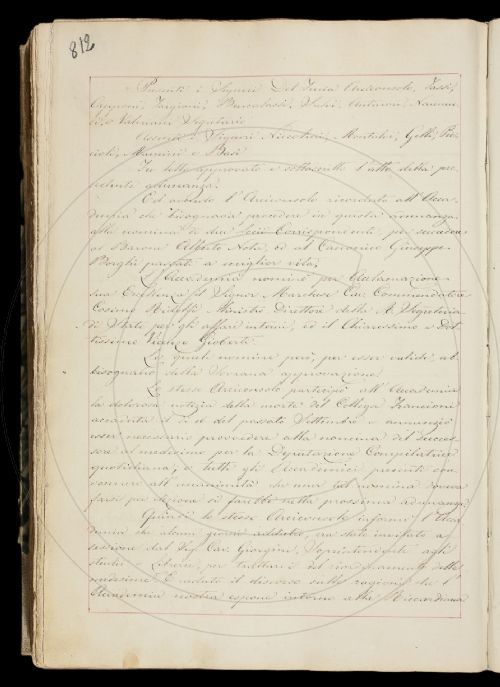 812
Presenti i Signori Del Furia Arciconsolo, Tassi,
Capponi, Targioni, Becchi, Antinori, Nannuc-
ci, e Valeriani Segretario
Assenti i Signori Niccolini, Montalvi, Gelli, Puc-
cioli, Mannini e Basi
Fu letto approvato e sottoscritto l'atto della pre-
cedente adunanza.
Ed avendo l'Arciconsolo ricordato all'Acca-
demia che bisognava procedere in questa adunanza
alla nomina di due Socii Corrispondenti per succedere
al Barone Alberto Nota, ed al Canonico Giuseppe
Borghi passati a miglior vita;
L'Accademia nominò per Acclamazione
sua Eccellenza il Signor Marchese Cav. Commendatore
Cosimo Ridolfi Ministro Direttore della R. Segreteria
di Stato per gli affari interni, ed il Chiarissimo e Dot-
tissimo Vincenzo Gioberti.
Le quali nomine però, per esser valide, ab-
bisognano della Sovrana approvazione.
Lo stesso Arciconsolo partecipò all'Accademia
la dolorosa notizia della morte del Collega Francioni
accaduta il dì del passato Settembre e annunziò
esser necessario provvedere alla nomina del Succes-
sore al medesimo per la Deputazione Compilatrice
quotidiana; e tutti gli Accademici presenti con-
vennero all'unanimità che una tal nomina
farsi per elezione si farebbe nella prossima adunanza.
Quindi lo stesso Arciconsolo informò l'Acca-
demia che alcuni giorni addietro, era stato invitato a
sessione dal Sig. Cav. Giorgini, Soprintendente agli
studi e Librerie, per trattarvi del riordinamento delle
medesime. E caduto il discorso sulle ragioni che l'
Accademia nostra espone intorno alla Riccardiana